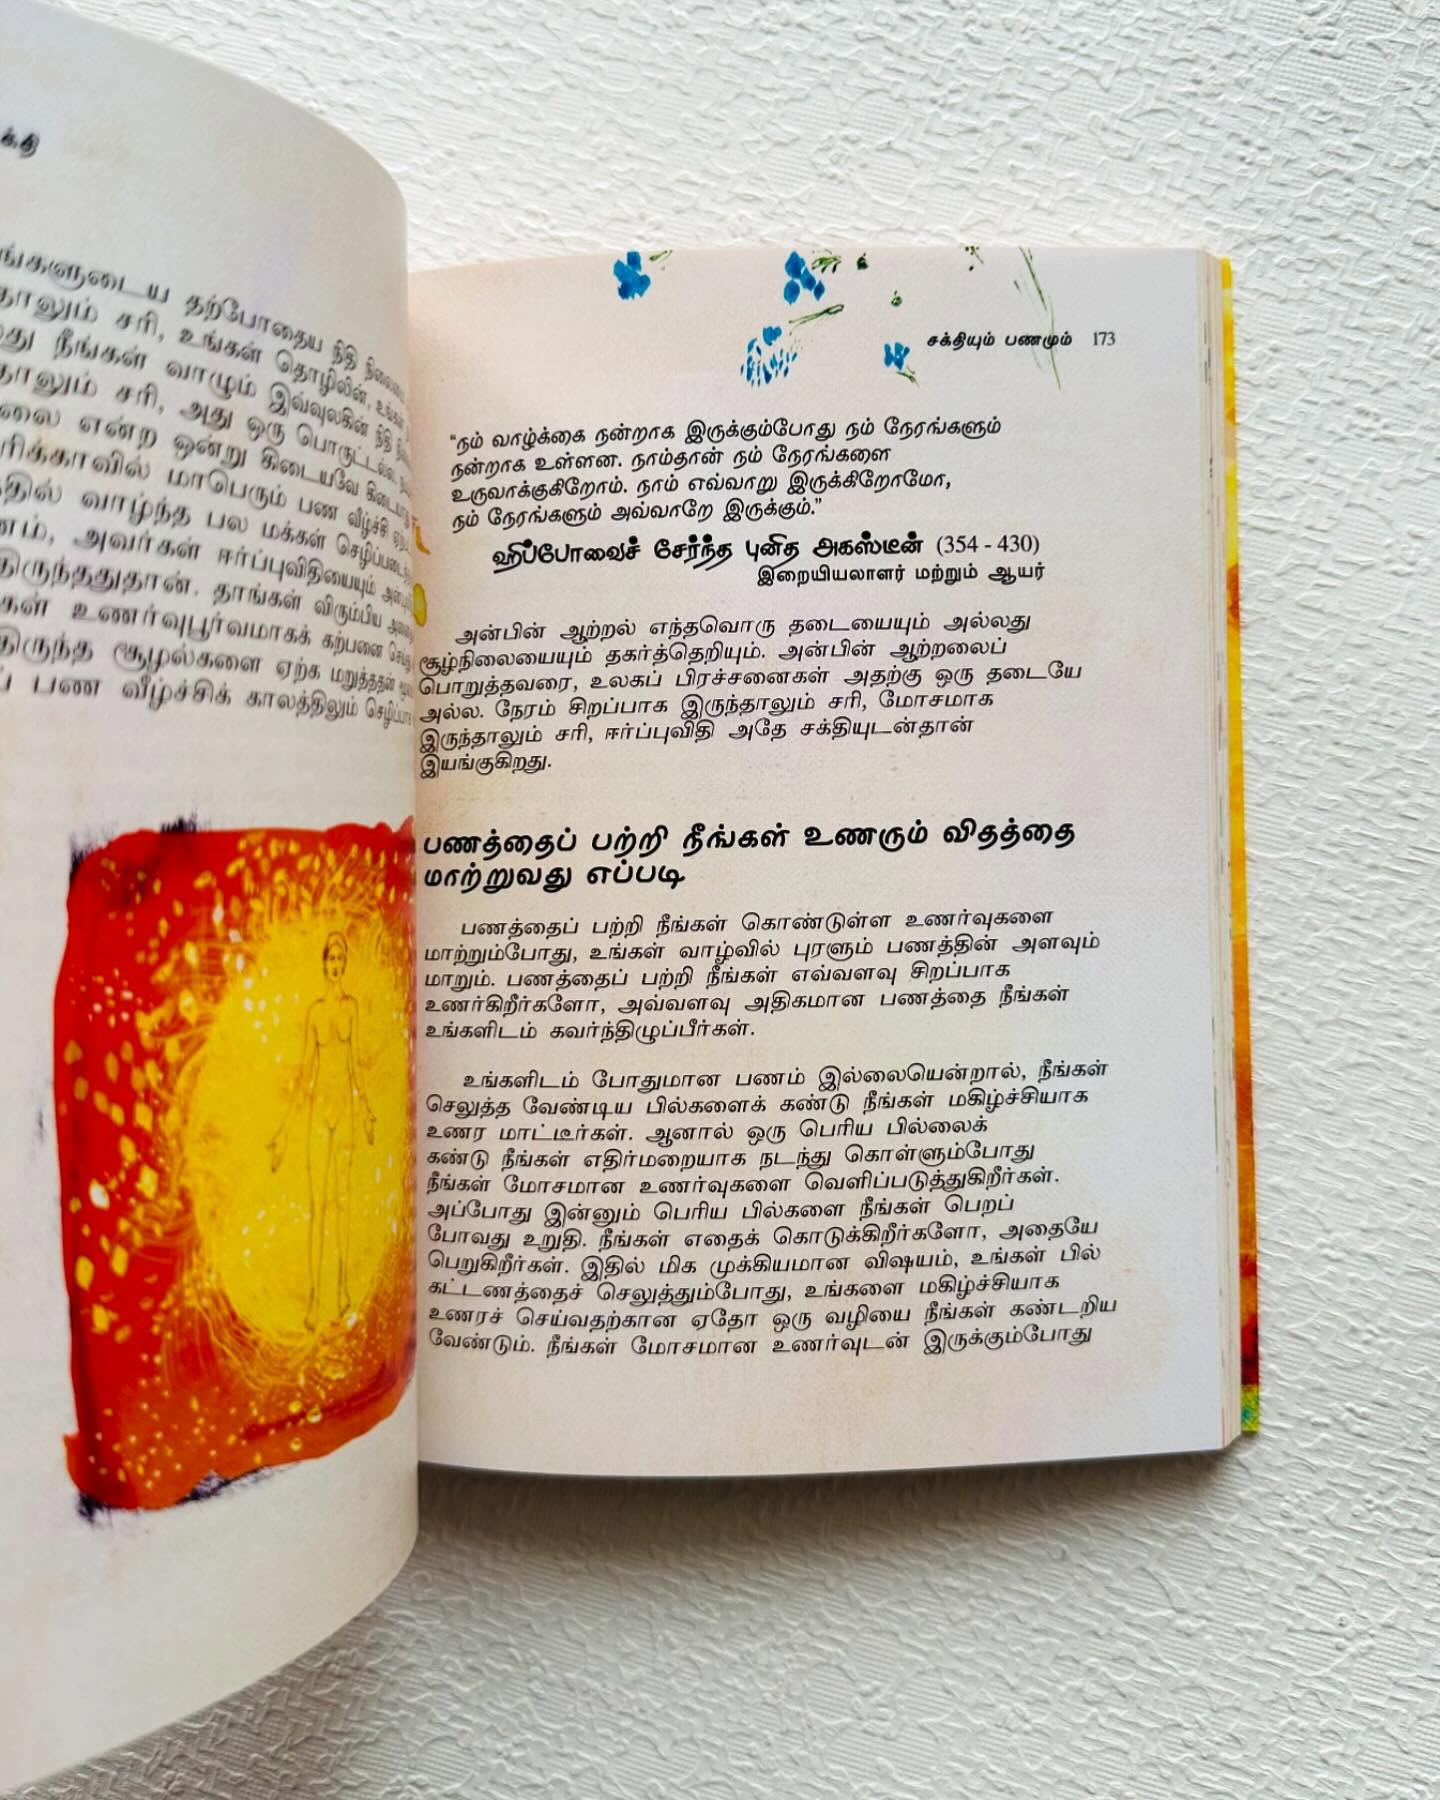 க்தி
ங்களுடைய தற்போதைய நிதி
தாலும் சரி, உங்கள் தொழிலின், உங்கள்
து நீங்கள் வாழும் இவ்வுலகின் நிதி
தாலும் சரி, அது ஒரு பொருட்டல்ல.
லை என்ற ஒன்று கிடையவே
ரிக்காவில் மாபெரும் பண வீழ்ச்சி
தில் வாழ்ந்த பல மக்கள்
னம், அவர்கள் ஈர்ப்புவிதியையும்
திருந்ததுதான். தாங்கள் விரும்பிய
கள் உணர்வுபூர்வமாகக் கற்பனை
திருந்த சூழல்களை ஏற்க மறுத்ததன்
ப் பண வீழ்ச்சிக் காலத்திலும்
சக்தியும் பணமும் 173
"நம் வாழ்க்கை நன்றாக இருக்கும்போது நம் நேரங்களும்
நன்றாக உள்ளன. நாம்தான் நம் நேரங்களை
உருவாக்குகிறோம். நாம் எவ்வாறு இருக்கிறோமோ,
நம் நேரங்களும் அவ்வாறே இருக்கும்."
ஹிப்போவைச் சேர்ந்த புனித அகஸ்டீன் (354 - 430)
இறையியலாளர் மற்றும் ஆயர்
அன்பின் ஆற்றல் எந்தவொரு தடையையும் அல்லது
சூழ்நிலையையும் தகர்த்தெறியும். அன்பின் ஆற்றலைப்
பொறுத்தவரை, உலகப் பிரச்சனைகள் அதற்கு ஒரு தடையே
அல்ல. நேரம் சிறப்பாக இருந்தாலும் சரி, மோசமாக
இருந்தாலும் சரி, ஈர்ப்புவிதி அதே சக்தியுடன்தான்
இயங்குகிறது.
பணத்தைப் பற்றி நீங்கள் உணரும் விதத்தை
மாற்றுவது எப்படி
பணத்தைப் பற்றி நீங்கள் கொண்டுள்ள உணர்வுகளை
மாற்றும்போது, உங்கள் வாழ்வில் புரளும் பணத்தின் அளவும்
மாறும். பணத்தைப் பற்றி நீங்கள் எவ்வளவு சிறப்பாக
உணர்கிறீர்களோ, அவ்வளவு அதிகமான பணத்தை நீங்கள்
உங்களிடம் கவர்ந்திழுப்பீர்கள்.
உங்களிடம் போதுமான பணம் இல்லையென்றால், நீங்கள்
செலுத்த வேண்டிய பில்களைக் கண்டு நீங்கள் மகிழ்ச்சியாக
உணர மாட்டீர்கள். ஆனால் ஒரு பெரிய பில்லைக்
கண்டு நீங்கள் எதிர்மறையாக நடந்து கொள்ளும்போது
நீங்கள் மோசமான உணர்வுகளை வெளிப்படுத்துகிறீர்கள்.
அப்போது இன்னும் பெரிய பில்களை நீங்கள் பெறப்
போவது உறுதி. நீங்கள் எதைக் கொடுக்கிறீர்களோ, அதையே
பெறுகிறீர்கள். இதில் மிக முக்கியமான விஷயம், உங்கள் பில்
கட்டணத்தைச் செலுத்தும்போது, உங்களை மகிழ்ச்சியாக
உணரச் செய்வதற்கான ஏதோ ஒரு வழியை நீங்கள் கண்டறிய
வேண்டும். நீங்கள் மோசமான உணர்வுடன் இருக்கும்போது